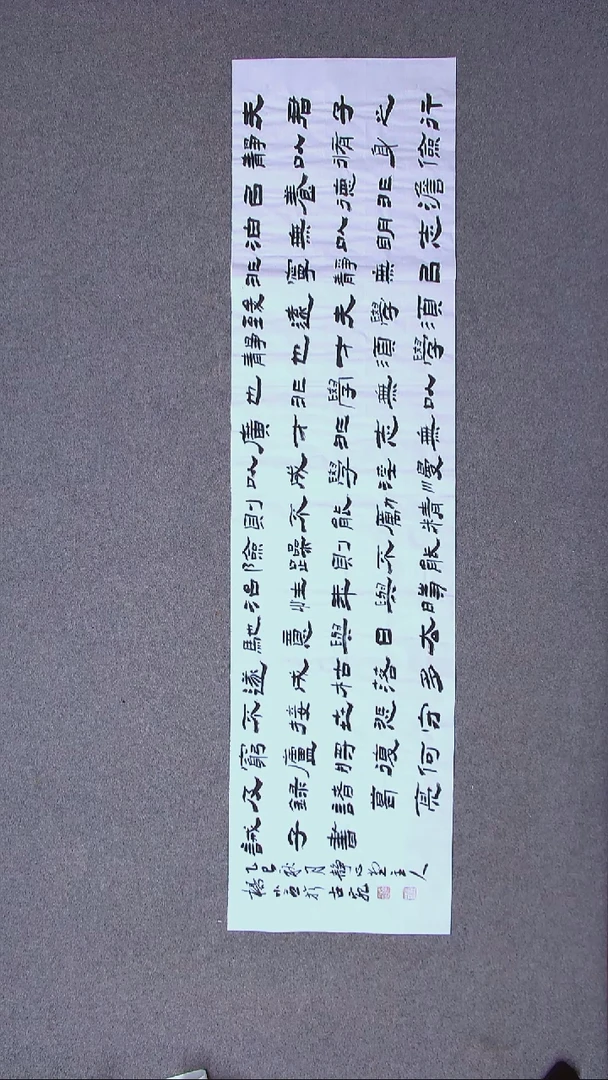 夫君子之行
靜以脩身儉
㠯養德非澹
泊無以明志
非寧靜無㠯
致遠夫學須
靜也才須學
也非學無以
廣才非志無
以成學淫慢
則不能勵精
險躁則不能
治性年與時
馳意與日去
遂成枯落多
不接世悲守
窮廬將復何
及録諸葛亮
誡子書
乙巳秋月靜心堂主人
楊小於古宛